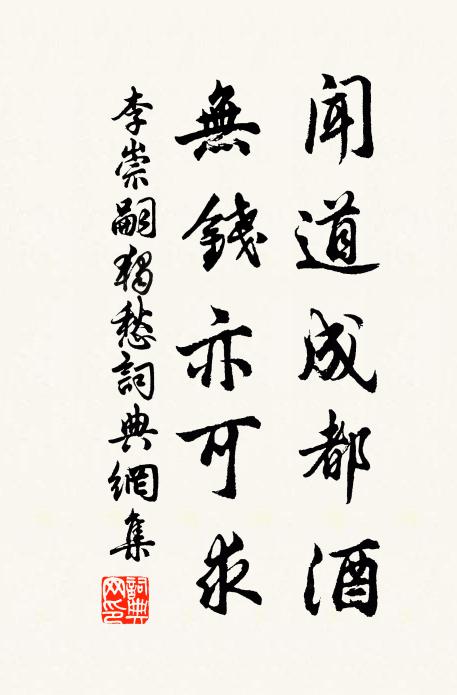 聞道成都酒
無錢亦可求
李崇嗣獨愁詞典網集
詞典網印